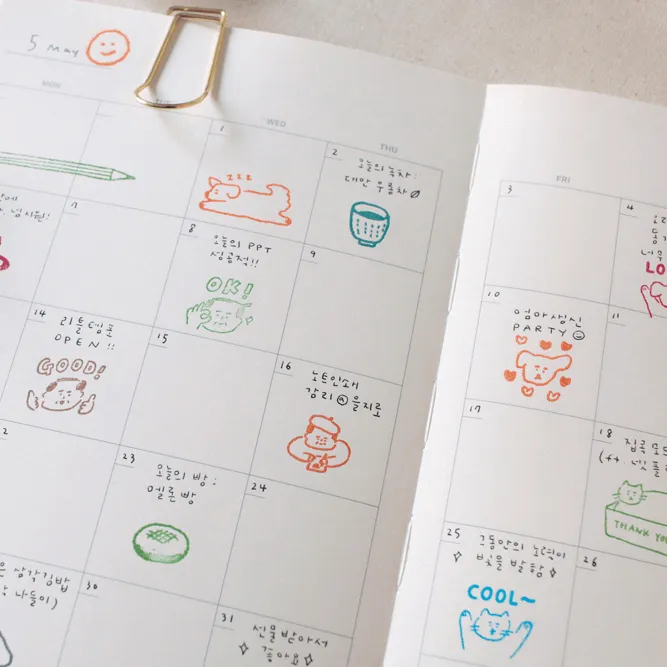 5 May
MON
WED
THU
FRI
1
zzz
2
오늘의 녹차:
대만 우롱차
3
4
LO
7
8
오늘의 PPT
성공적!!
OK!
9
10
엄마생신
PARTY
11
14
리틀템포
OPEN!!
GOOD!
15
16
노트인쇄
감리 @ 을지로
17
18
THANK YOU
2
23
오늘의 빵:
멜론빵
24
25
그동안의 노력이
빛을 발함
COOL~
26
은 삼각김밥
나들이)
30
31
선물받아서